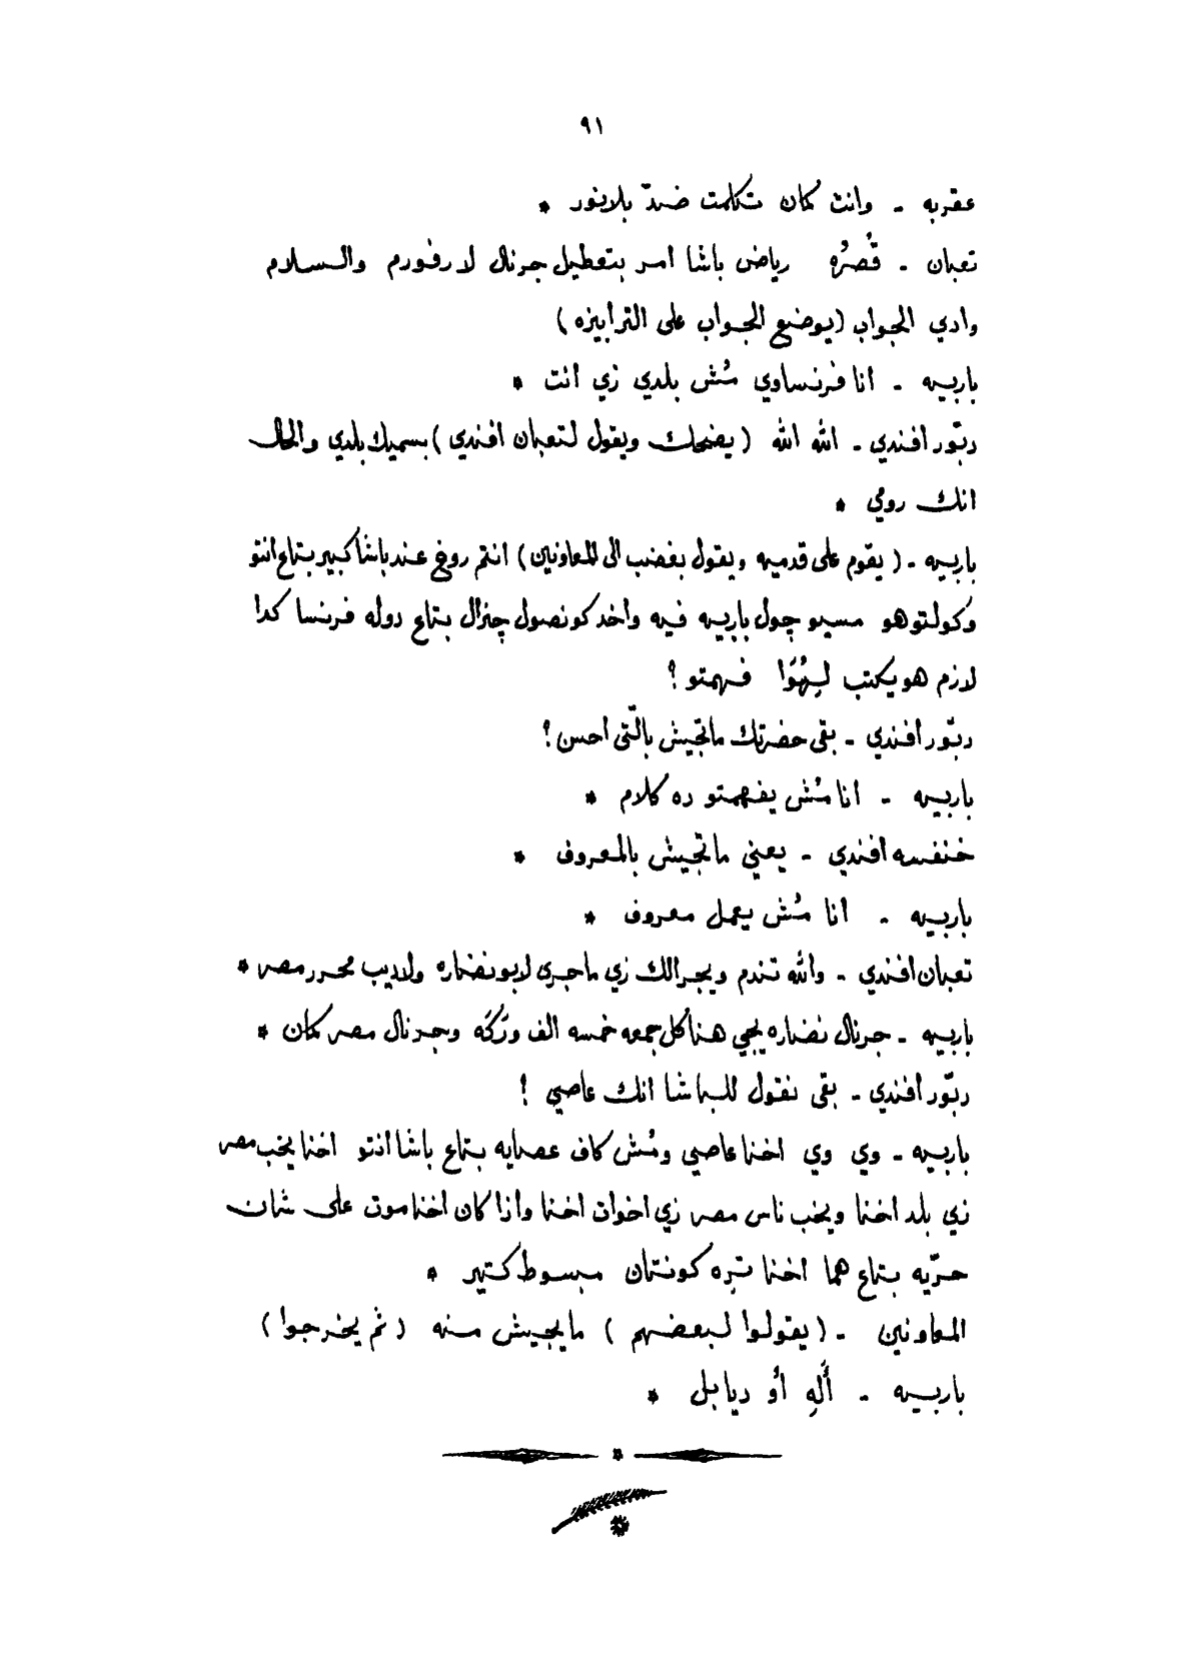 ٩١
عقربه - وانت كمان تكلمت ضدّ بلانور *
تعبان - قُصرُه رياض باشا امر بتعطيل جرنال لارفورم والسلام
وادي الجواب (يوضع الجواب على الترابيزه)
باربيه - انا فرنساوي مُش بلدي زي انت *
دبّور افندي - الله الله (يضحك ويقول لتعبان افندي) بسميك بلدي والحال
انك رومي *
باربيه - (يقوم على قدميه ويقول بغضب الى المعاونين) انتم روخ عند باشا كبير بتاع انتو
وكولتو هو مسيو چول باربيه فيه واخد كونصول چنرال بتاع دوله فرنسا كدا
لازم هو يكتب لِهُوَا فهمتو ؟
دبّور افندي - بقى حضرتك ماتجيش بالّتى احسن ؟
باربيه - انا مُش يفهمتو ده كلام *
خنفسه افندي - يعني ماتجيش بالمعروف *
باربيه - انا مُش يعمل معروف *
تعبان افندي - والله تندم ويجرالك زي ماجرى لابو نضاره ولاديب محرر مصر *
باربيه - جرنال نضاره يجي هنا كل جمعه خمسه الف ورَكَه وجرنال مصر كمان *
دبّور افندي - بقى نقول للباشا انك عاصي !
باربيه - وي وي اخنا عاصي ومُش كاف عصايه بتاع باشا انتو اخنا يخب مصر
زي بلد اخنا ويخب ناس مصر زي اخوات اخنا واذا كان اخنا موت على شان
حرّيه بتاع هما اخنا تِره كونتان مبسوط كتير *
المعاونين - (يقولوا لبعضهم) مايجيش منه (ثم يخرجوا)
باربيه - أَلِه أُو ديابل *